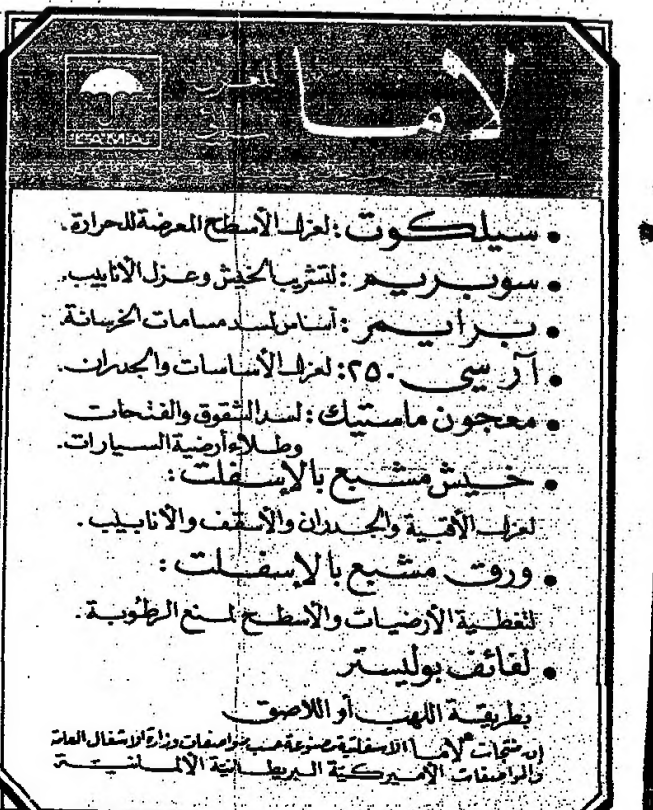 لاما
LAMA
• سيلكوت : لعزل الأسطح المعرضة للحرارة.
• سوبريم : لتشريب الخيش وعزل الأنابيب.
• برايمر : أساس لسد مسامات الخرسانة.
• آر سي ٢٥٠ : لعزل الأساسات والجدران.
• معجون ماستيك : لسد الشقوق والفتحات
وطلاء أرضية السيارات.
• خيش مشبع بالإسفلت :
لعزل الأقبية والجدران والأسقف والأنابيب .
• ورق مشبع بالإسفلت :
لتغطية الأرضيات والأسطح لمنع الرطوبة .
• لفائف بوليستر
بطريقة اللهب أو اللاصق
إن منتجات "لاما" الاسفلتية مصنوعة حسب مواصفات وزارة الاشغال العامة
والمواصفات الأميركية البريطانية الألمانية